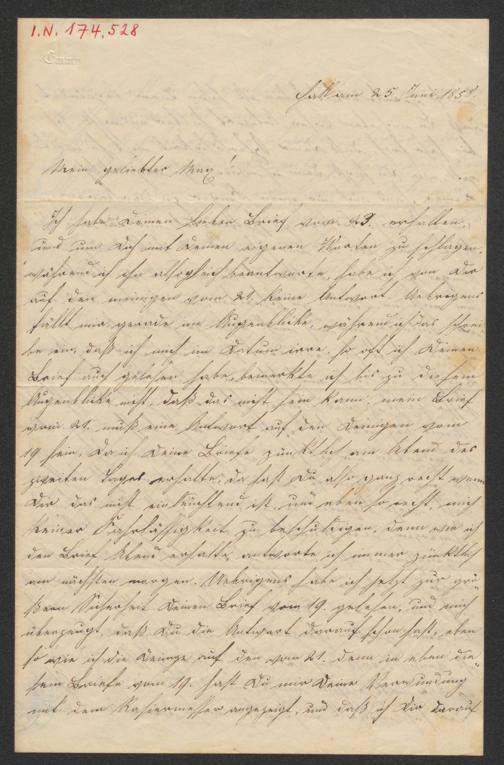 I.N. 174.528
Hall am 25 Juni 1858
Mein geliebter Max!
Ich habe Deinen lieben Brief vom 23. erhalten,
und um Dich mit Deinen eigenen Worten zu schlagen,
während ich ihn allsogleich beantworte, habe ich von Dir
auf den meinigen vom 21. keine Antwort. Uebrigens
fällt mir gerade im Augenblicke, während ich das schrei-
be ein, daß ich mich im Datum irre, so oft ich Deinen
Brief auch gelesen habe, bemerkte ich bis zu diesem
Augenblicke nicht, daß das nicht sein kann, mein Brief
vom 21. muß eine Antwort auf den Deinigen vom
19 sein, da ich Deine Briefe pünktlich am Abend des
zweiten Tages erhalte, da hast Du also ganz recht wenn
Dir das nicht einleuchtend ist, und eben so recht, mich
keiner Fahrlässigkeit zu beschuldigen, denn wie ich
den Brief Abend erhalte, antworte ich immer pünktlich
am nächsten morgen. Uebrigens habe ich jetzt zur grö-
ßern Sicherheit Deinen Brief vom 19. gelesen, und mich
überzeugt, daß Du die Antwort darauf schon hast, eben
so wie ich die Deinige auf den vom 21. denn in eben die-
sem Briefe vom 19. hast Du mir Deine Verwundung
mit dem Rasiermesser angezeigt, und daß ich Dir darauf